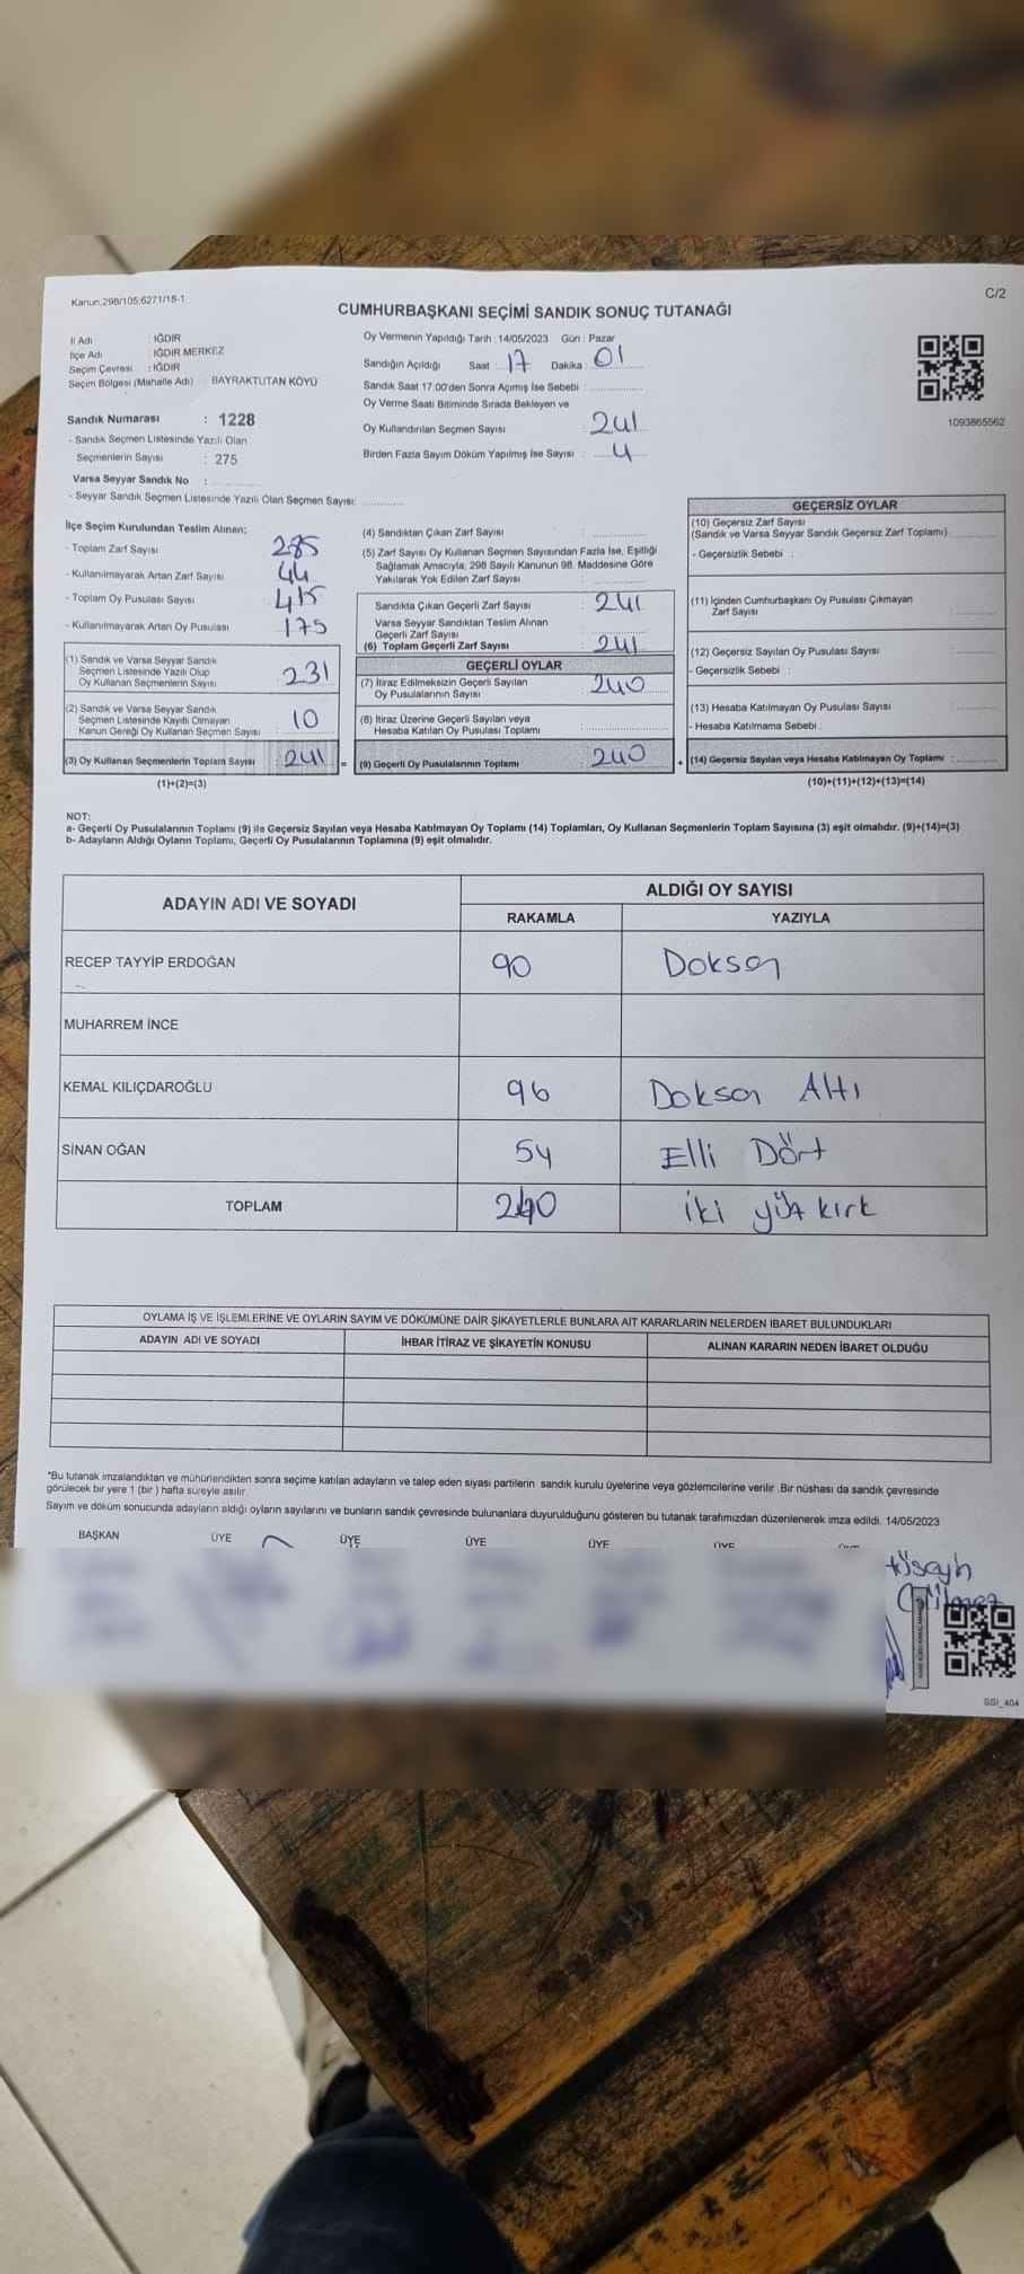 Kanun:298/105;6271/15-1
C/2
CUMHURBAŞKANI SEÇİMİ SANDIK SONUÇ TUTANAĞI
İl Adı : IĞDIR
İlçe Adı : IĞDIR MERKEZ
Seçim Çevresi : IĞDIR
Seçim Bölgesi (Mahalle Adı) : BAYRAKTUTAN KÖYÜ
Oy Vermenin Yapıldığı Tarih : 14/05/2023 Gün : Pazar
Sandığın Açıldığı Saat : 17 Dakika : 01
Sandık Saat 17.00'den Sonra Açımış İse Sebebi :
Oy Verme Saati Bitiminde Sırada Bekleyen ve
Oy Kullandırılan Seçmen Sayısı : 241
Birden Fazla Sayım Döküm Yapılmış İse Sayısı : 4
1093865562
Sandık Numarası : 1228
- Sandık Seçmen Listesinde Yazılı Olan
Seçmenlerin Sayısı : 275
Varsa Seyyar Sandık No :
- Seyyar Sandık Seçmen Listesinde Yazılı Olan Seçmen Sayısı:
İlçe Seçim Kurulundan Teslim Alınan;
- Toplam Zarf Sayısı 285
- Kullanılmayarak Artan Zarf Sayısı 44
- Toplam Oy Pusulası Sayısı 415
- Kullanılmayarak Artan Oy Pusulası 175
(1) Sandık ve Varsa Seyyar Sandık
Seçmen Listesinde Yazılı Olup
Oy Kullanan Seçmenlerin Sayısı 231
(2) Sandık ve Varsa Seyyar Sandık
Seçmen Listesinde Kayıtlı Olmayan
Kanun Gereği Oy Kullanan Seçmen Sayısı 10
(3) Oy Kullanan Seçmenlerin Toplam Sayısı 241 =
(1)+(2)=(3)
(4) Sandıktan Çıkan Zarf Sayısı :
(5) Zarf Sayısı Oy Kullanan Seçmen Sayısından Fazla İse, Eşitliği
Sağlamak Amacıyla, 298 Sayılı Kanunun 98. Maddesine Göre
Yakılarak Yok Edilen Zarf Sayısı :
Sandıkta Çıkan Geçerli Zarf Sayısı : 241
Varsa Seyyar Sandıktan Teslim Alınan
Geçerli Zarf Sayısı :
(6) Toplam Geçerli Zarf Sayısı : 241
GEÇERLİ OYLAR
(7) İtiraz Edilmeksizin Geçerli Sayılan
Oy Pusulalarının Sayısı : 240
(8) İtiraz Üzerine Geçerli Sayılan veya
Hesaba Katılan Oy Pusulası Toplamı :
(9) Geçerli Oy Pusulalarının Toplamı : 240 +
GEÇERSİZ OYLAR
(10) Geçersiz Zarf Sayısı
(Sandık ve Varsa Seyyar Sandık Geçersiz Zarf Toplamı)
- Geçersizlik Sebebi :
(11) İçinden Cumhurbaşkanı Oy Pusulası Çıkmayan
Zarf Sayısı
(12) Geçersiz Sayılan Oy Pusulası Sayısı
- Geçersizlik Sebebi :
(13) Hesaba Katılmayan Oy Pusulası Sayısı
- Hesaba Katılmama Sebebi :
(14) Geçersiz Sayılan veya Hesaba Katılmayan Oy Toplamı :
(10)+(11)+(12)+(13)=(14)
NOT:
a- Geçerli Oy Pusulalarının Toplamı (9) ile Geçersiz Sayılan veya Hesaba Katılmayan Oy Toplamı (14) Toplamları, Oy Kullanan Seçmenlerin Toplam Sayısına (3) eşit olmalıdır. (9)+(14)=(3)
b- Adayların Aldığı Oyların Toplamı, Geçerli Oy Pusulalarının Toplamına (9) eşit olmalıdır.
ADAYIN ADI VE SOYADI
ALDIĞI OY SAYISI
RAKAMLA YAZIYLA
RECEP TAYYİP ERDOĞAN 90 Doksan
MUHARREM İNCE
KEMAL KILIÇDAROĞLU 96 Doksan Altı
SİNAN OĞAN 54 Elli Dört
TOPLAM 240 iki yüz kırk
OYLAMA İŞ VE İŞLEMLERİNE VE OYLARIN SAYIM VE DÖKÜMÜNE DAİR ŞİKAYETLERLE BUNLARA AİT KARARLARIN NELERDEN İBARET BULUNDUKLARI
ADAYIN ADI VE SOYADI İHBAR İTİRAZ VE ŞİKAYETİN KONUSU ALINAN KARARIN NEDEN İBARET OLDUĞU
*Bu tutanak imzalandıktan ve mühürlendikten sonra seçime katılan adayların ve talep eden siyasi partilerin sandık kurulu üyelerine veya gözlemcilerine verilir. Bir nüshası da sandık çevresinde
görülecek bir yere 1 (bir) hafta süreyle asılır.
Sayım ve döküm sonucunda adayların aldığı oyların sayılarını ve bunların sandık çevresinde bulunanlara duyurulduğunu gösteren bu tutanak tarafımızdan düzenlenerek imza edildi. 14/05/2023
BAŞKAN ÜYE ÜYE ÜYE ÜYE ÜYE
SSI_404